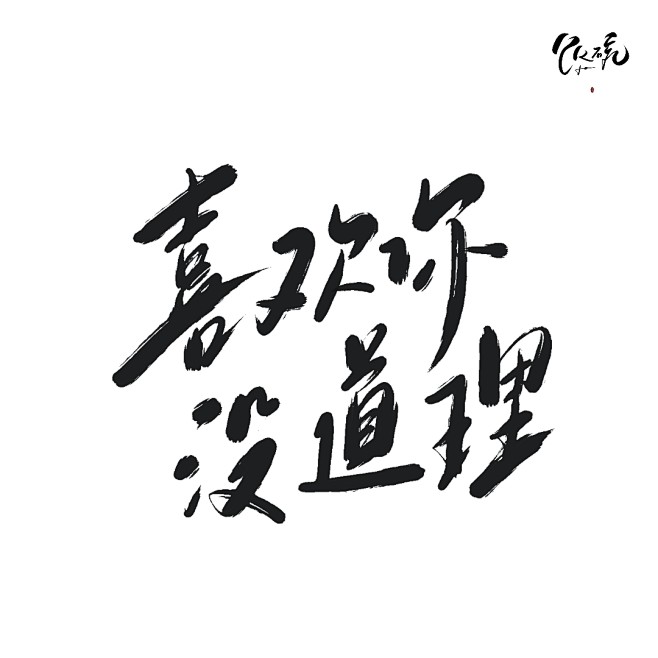 喜欢你
没道理